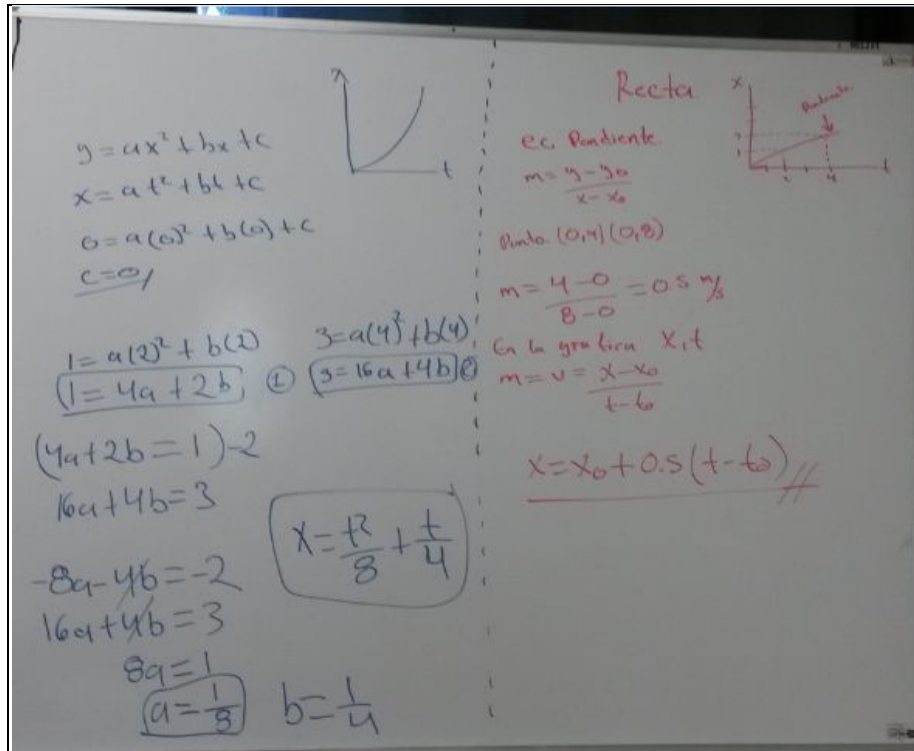 t
y = ax² + bx + c
x = at² + bt + c
0 = a(0)² + b(0) + c
c = 0
1 = a(2)² + b(2)
1 = 4a + 2b ①
3 = a(4)² + b(4)
3 = 16a + 4b ②
(4a + 2b = 1) -2
16a + 4b = 3
-8a - 4b = -2
16a + 4b = 3
8a = 1
a = 1/8
b = 1/4
x = t²/8 + t/4
Recta
x
Pendiente
t
ec. Pendiente
m = y - y0 / x - x0
Punto (0,4) (0,8)
m = 4 - 0 / 8 - 0 = 0.5 m/s
En la grafica x,t
m = v = x - x0 / t - t0
x = x0 + 0.5 (t - t0) //